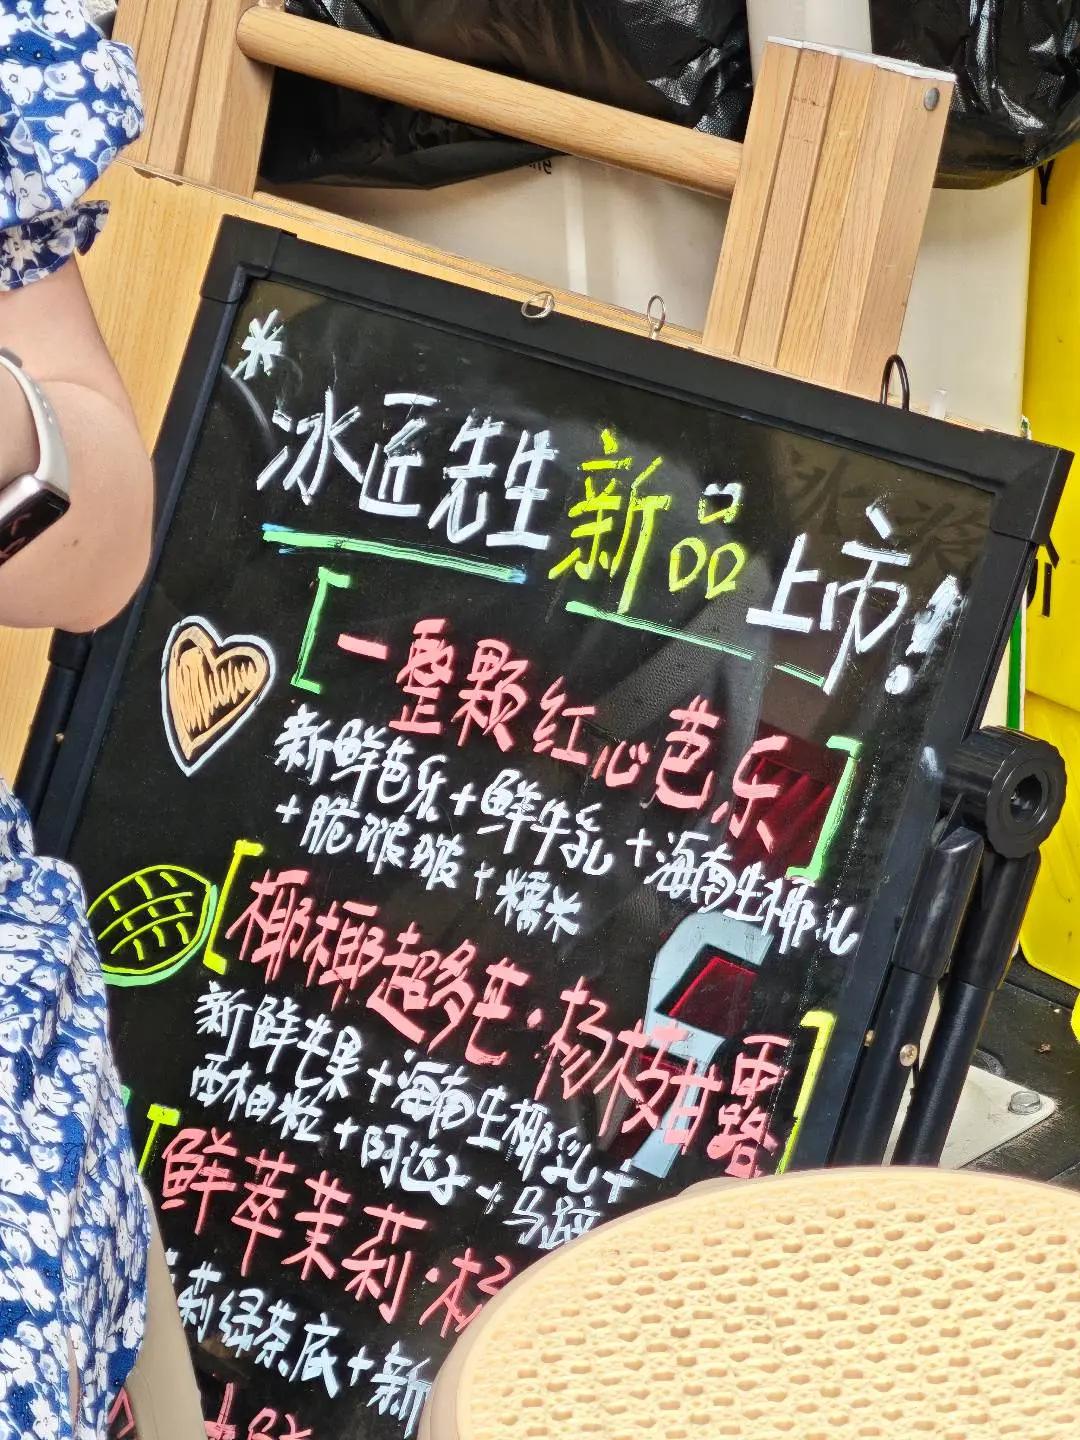 冰匠先生新品上市!
[一整颗红心芭乐]
新鲜芭乐+鲜牛乳+海南生椰乳
+脆波波+糯米
[椰椰超多芒·杨枝甘露]
新鲜芒果+海南生椰乳+
西柚粒+阿达子+马蹄
鲜萃茉莉·杨
莉绿茶底+新